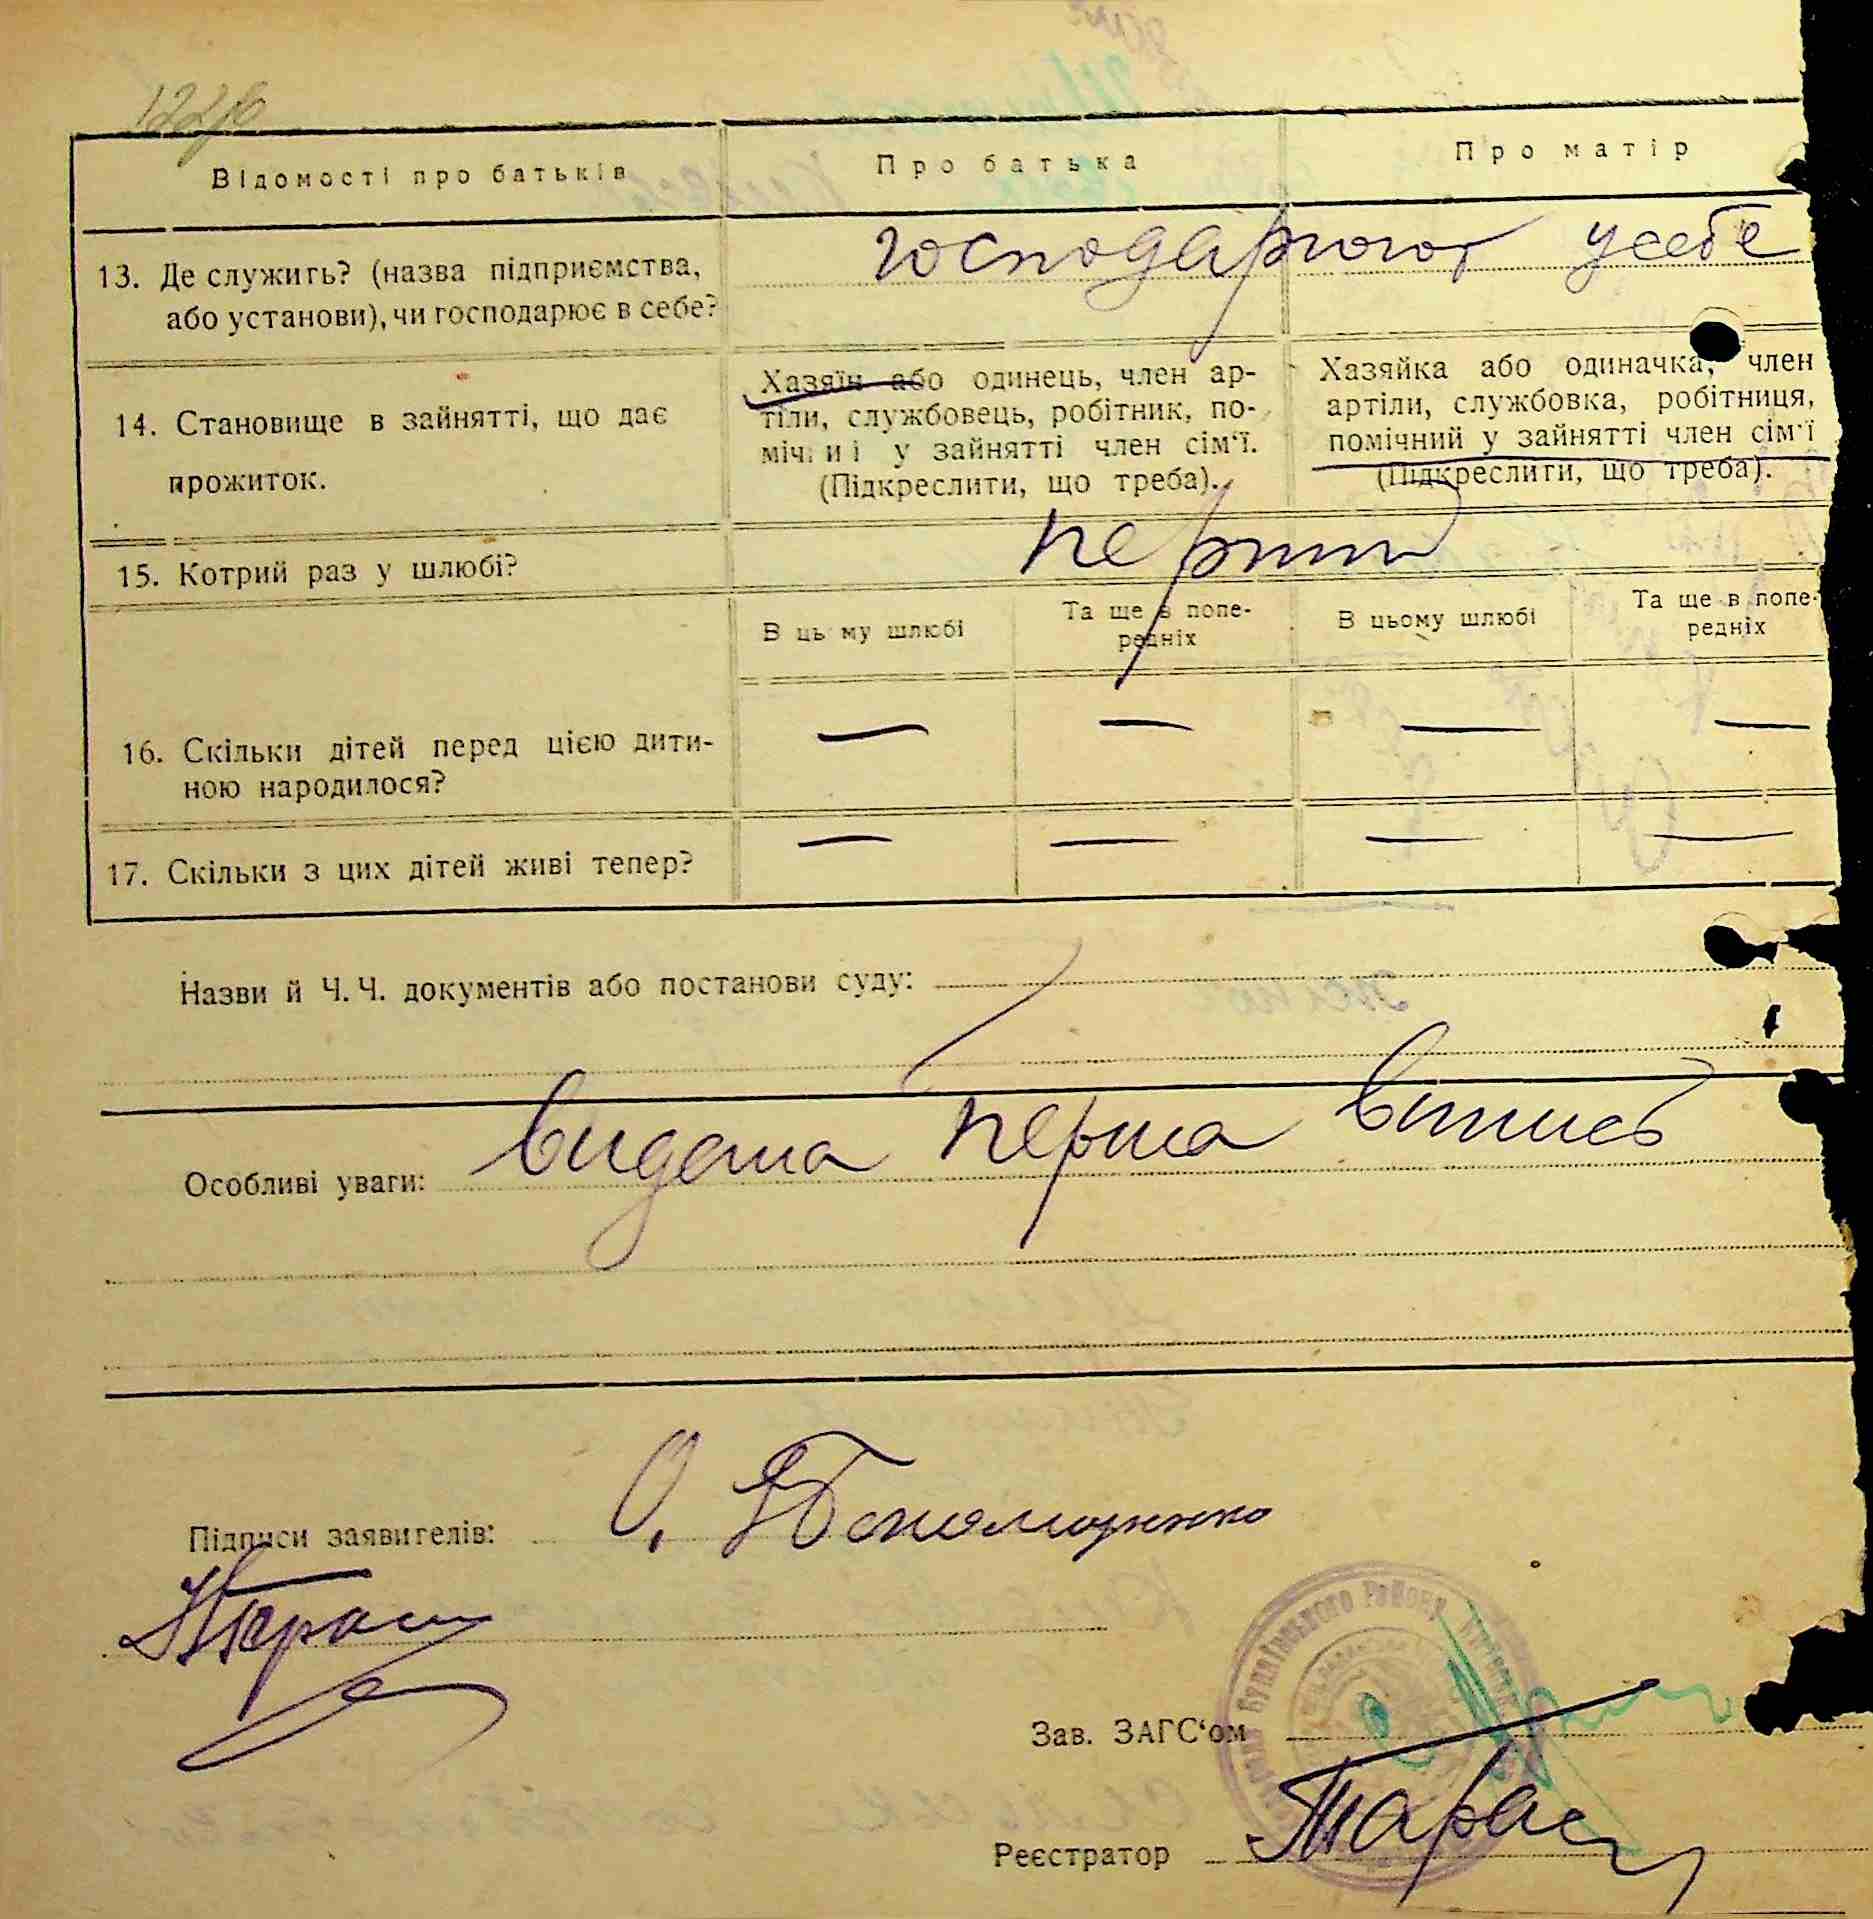 Відомості про батьків
Про батька
Про матір
13. Де служить? (назва підприємства,
або установи), чи господарює в себе?
господарюют усебе
14. Становище в зайнятті, що дає
прожиток.
Хазяїн або одинець, член ар-
тіли, службовець, робітник, по-
мічниі у зайнятті член сім'ї.
(Підкреслити, що треба).
Хазяйка або одиначка, член
артіли, службовка, робітниця,
помічний у зайнятті член сім'ї
(Підкреслити, що треба).
15. Котрий раз у шлюбі?
перший
В цьому шлюбі
Та ще в попе-
редніх
В цьому шлюбі
Та ще в попе-
редніх
16. Скільки дітей перед цією дити-
ною народилося?
— — — —
17. Скільки з цих дітей живі тепер?
— — — —
Назви й Ч. Ч. документів або постанови суду:
Особливі уваги: видана перша випись
Підписи заявителів: О.
Зав. ЗАГС'ом
Реєстратор Тарас